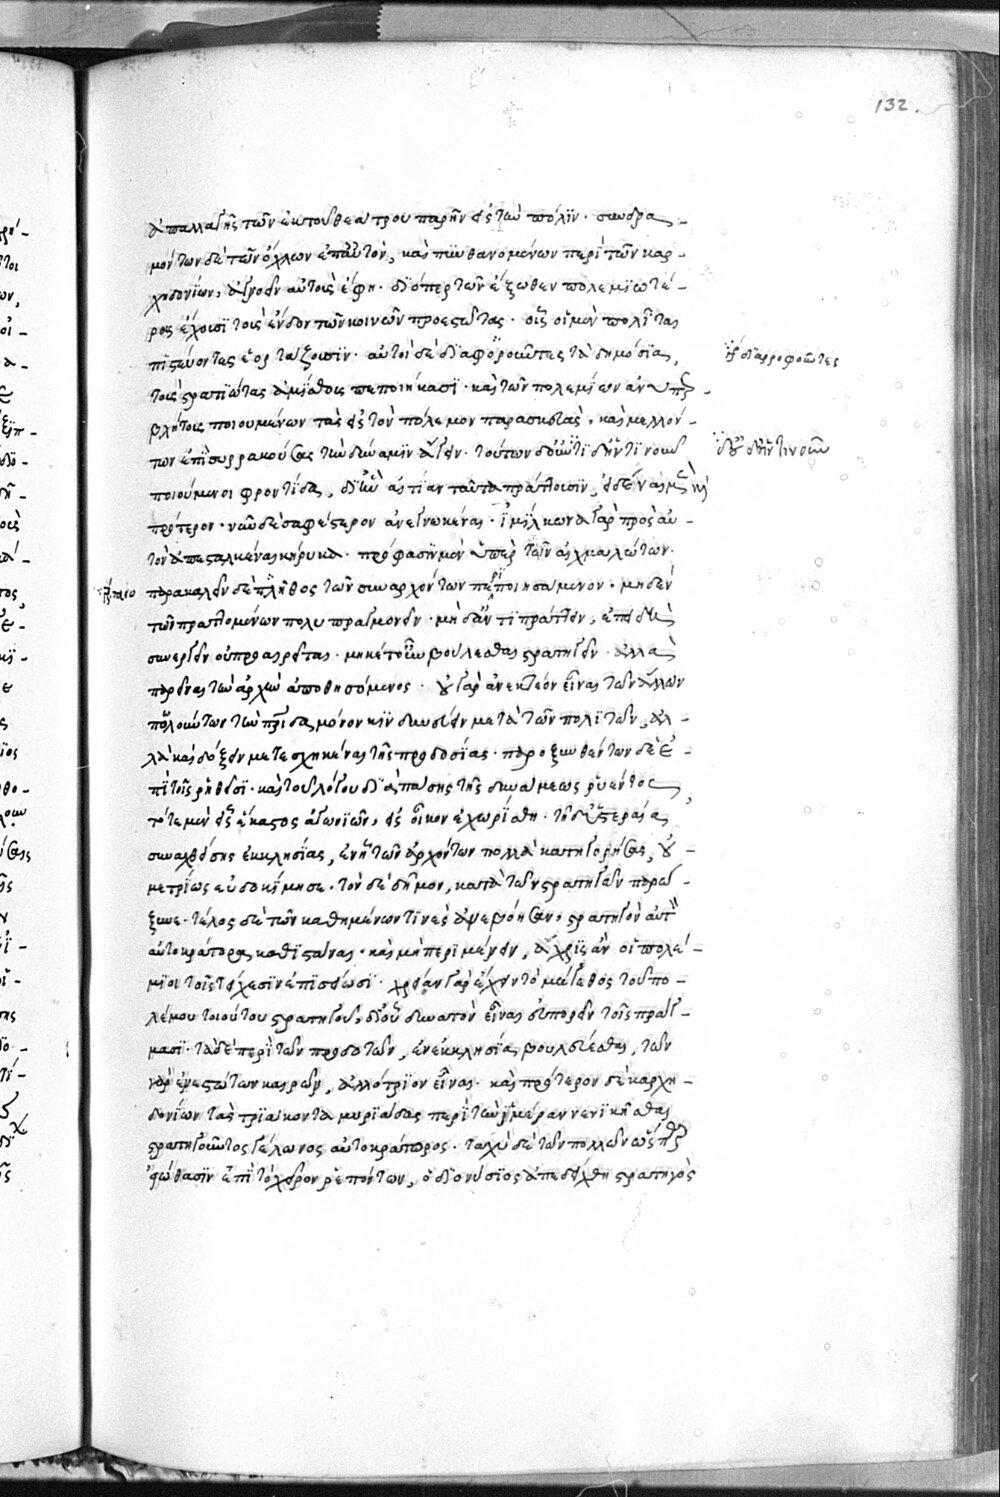 132.
ἀπαλλαγῆς τῶν ἐκ τοῦ θεάτρου παρῆν εἰς τὴν πόλϊν· συνδρα-
μόντων δὲ τῶν ὄχλων ἐπ' αὐτὸν, καὶ πυνθανομένων περὶ τῶν καρ-
χηδονίων, ἀγνοεῖν αὐτοὺς ἔφη· διόπερ τῶν ἔξωθεν πολεμιωτέ-
ρους ἔχουσϊ τοὺς ἔνδον τῶν κοινῶν προεστῶτας· οἷς οἱ μὲν πολῖται
πιστεύοντες ἑορτάζουσϊν· αὐτοὶ δὲ διαφοροῦντες τὰ δημόσϊα,
ἢ διαρροφοῦντες
τοὺς στρατιώτας ἀμίσθους πεποιήκασϊ· καὶ τῶν πολεμίων ἀνυπερ-
βλήτους ποιουμένων τὰς εἰς τὸν πόλεμον παρασκευὰς, καὶ μελλόν-
των ἐπὶ συρρακούσας τὴν δύναμϊν ἄγειν· τούτων οὐδ' ἡντινοῦν
οὐδ' ἡντινοῦν
ποιούμενοι φροντίδα, δι' ἣν αἰτίαν ταῦτα πράττουσϊν, εἰδέναι μὲν καὶ
πρότερον· νῦν δὲ σαφέστερον ἀνεγνωκέναι· ἰμίλκωνα γὰρ πρὸς αὐ-
τὸν ἀπεσταλκέναι κήρυκα· πρόφασϊν μὲν ὑπὲρ τῶν αἰχμαλώτων·
παρακαλεῖν δὲ πλῆθος τῶν συναρχόντων περιποιησάμενον· μηδὲν
τῶν πραττομένων πολυπραγμονεῖν· μὴ δ' ἀντιπράττειν, ἐπειδὴ
συνεργεῖν οὐ προαιρεῖται· μηκέτ' οὖν βούλεσθαι στρατηγεῖν· ἀλλὰ
παρεῖναι τὴν ἀρχὴν ἀποθησόμενος· οὐ γὰρ ἀνεκτέον εἶναι τῶν ἄλλων
πωλούντων τὴν πατρίδα μόνον κινδυνεύειν μετὰ τῶν πολιτῶν, ἀλ-
λὰ καὶ δόξειν μετεσχηκέναι τῆς προδοσίας· παροξυνθέντων δὲ ἐ-
πὶ τοῖς ῥηθεῖσϊ· καὶ τοῦ λόγου διὰ πάσης τῆς δυνάμεως ῥυέντος,
τότε μὲν εἷς ἕκαστος ἀγωνιῶν, εἰς οἶκον ἐχωρίσθη· τῇ δ' ὑστεραίᾳ
συναχθείσης ἐκκλησίας, ἐν ᾗ τῶν ἀρχόντων πολλὰ κατηγορήσας, οὐ
μετρίως εὐδοκίμησε· τὸν δὲ δῆμον, κατὰ τῶν στρατηγῶν παρώ-
ξυνε· τέλος δὲ τῶν καθημένων τινὲς ἀνεβόησαν, στρατηγὸν αὐτὸν
αὐτοκράτορα καθϊστάναι· καὶ μὴ περιμένειν, ἄχρις ἂν οἱ πολέ-
μιοι τοῖς τείχεσϊν ἐπϊσείωσϊ· χρείαν γὰρ ἔχειν τὸ μέγεθος τοῦ πο-
λέμου τοιούτου στρατηγοῦ, δι' οὗ δυνατὸν εἶναι εὐπορεῖν τοῖς πράγ-
μασϊ· τὰ δὲ περὶ τῶν προδοτῶν, ἐν ἐκκλησίᾳ βουλεύεσθαι, τῶν
γὰρ ἐνεστώτων καιρῶν, ἀλλότριον εἶναι· καὶ πρότερον δὲ καρχη-
δονίων τὰς τριάκοντα μυριάδας περὶ τὴν ἱμέραν νενικῆσθαι
στρατηγοῦντος γέλωνος αὐτοκράτορος· ταχὺ δὲ τῶν πολλῶν ὥσπερ
εἰώθασϊν ἐπὶ τὸ χεῖρον ῥεπόντων, ὁ διονύσϊος ἀπεδείχθη στρατηγὸς